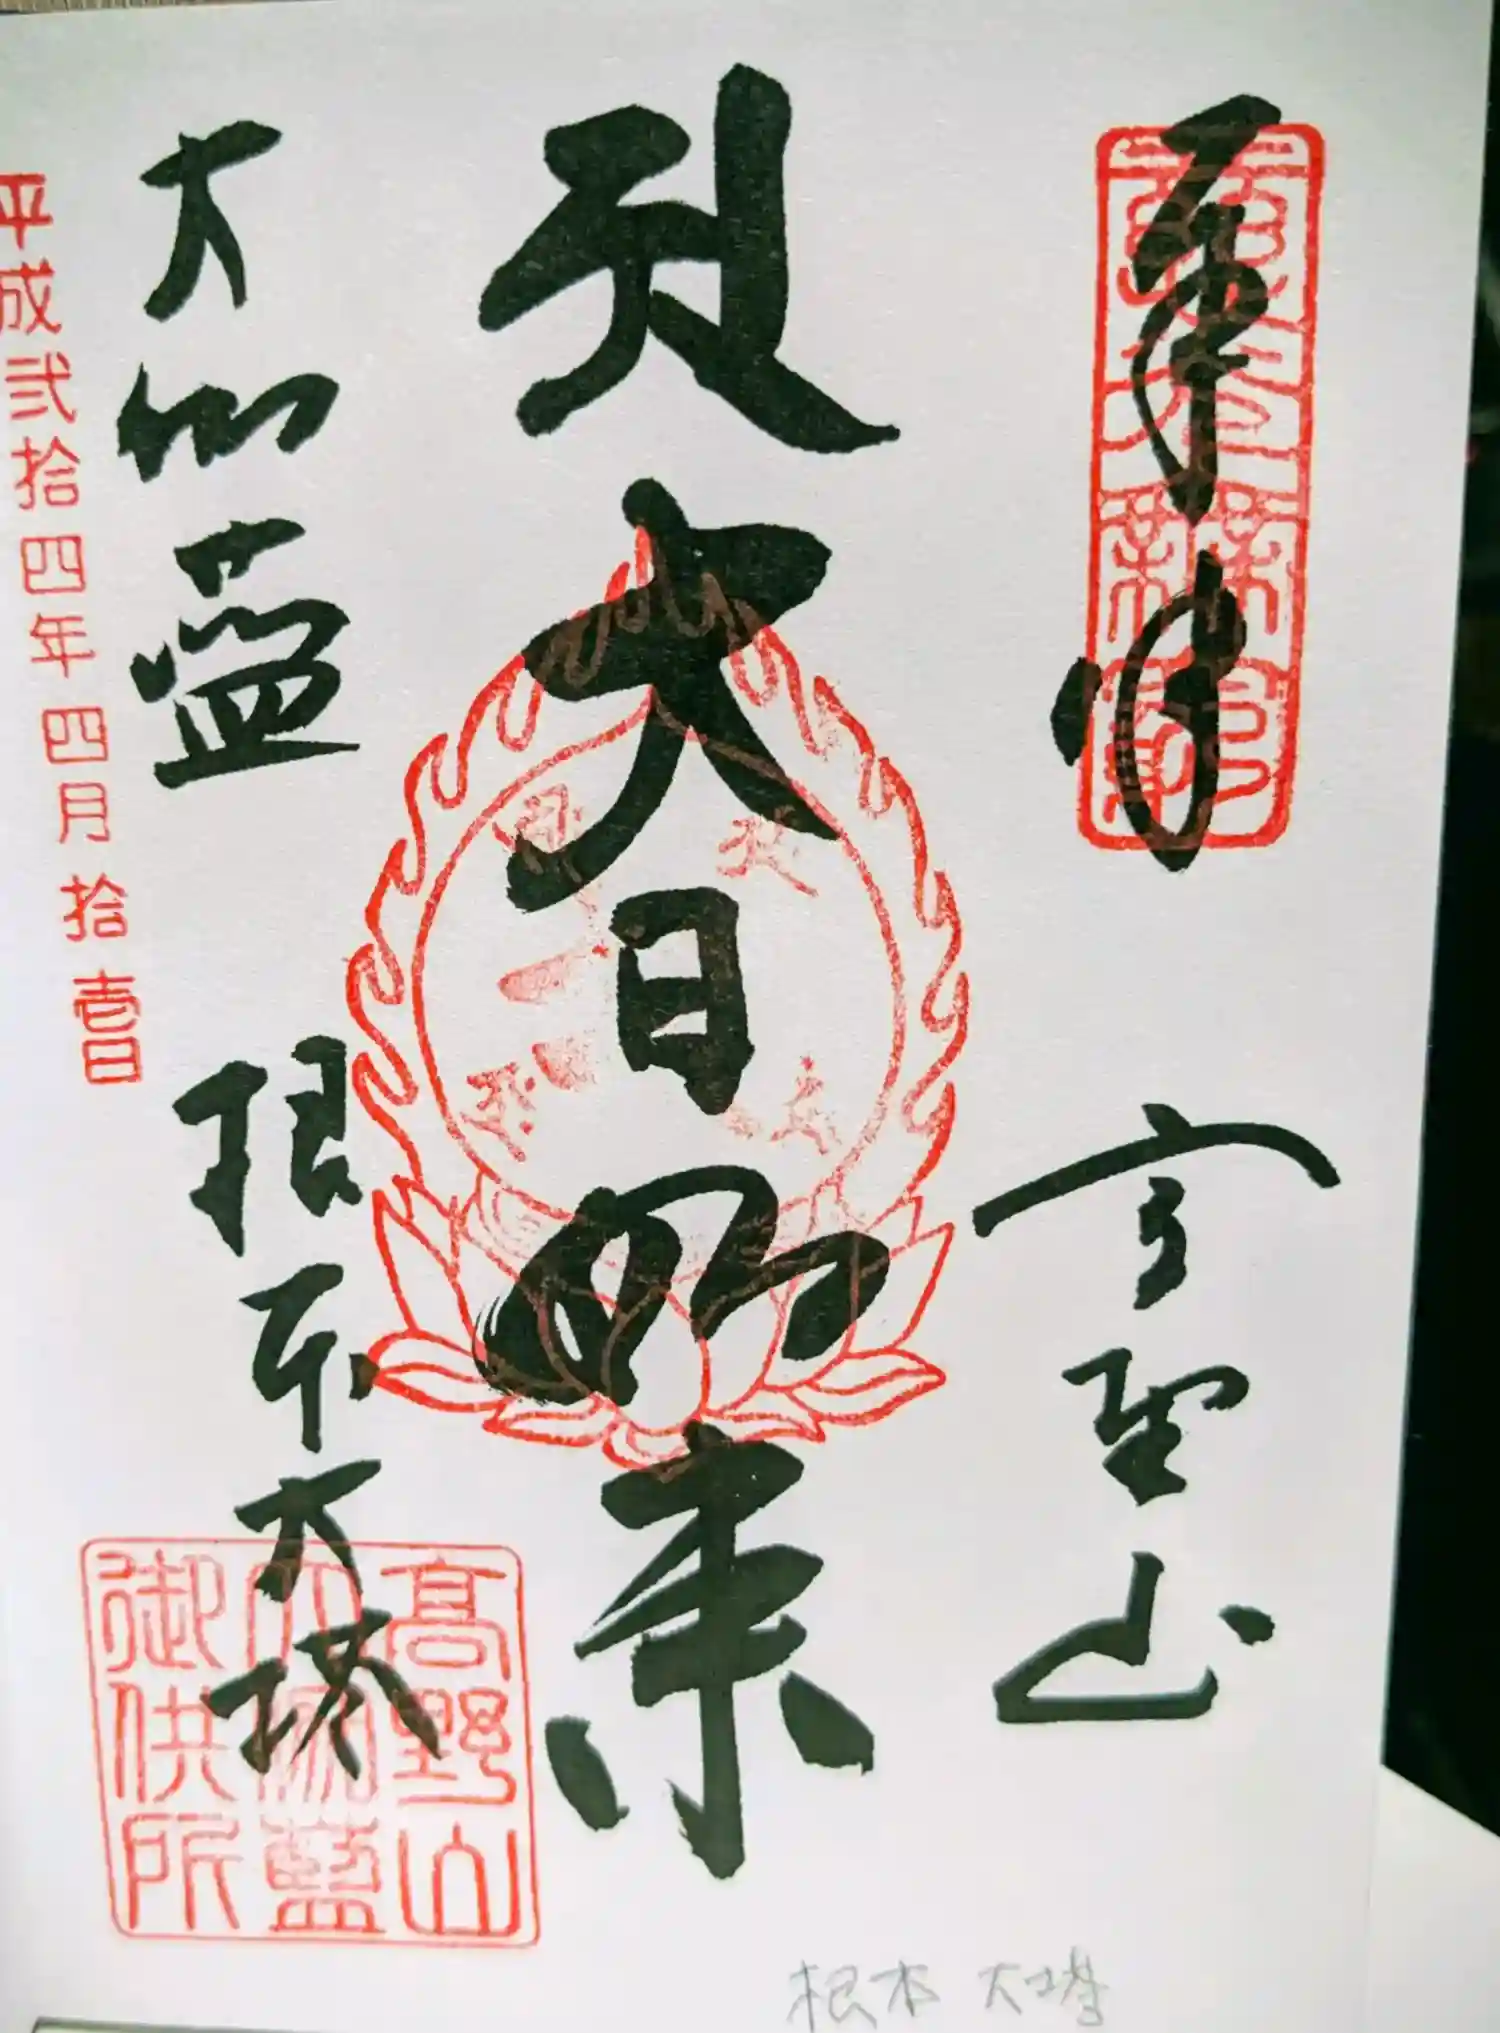 奉拝
高野山
大日如来
大伽藍 根本大塔
平成弐拾四年四月拾壱日
高野山
大伽藍
御供所
根本大塔